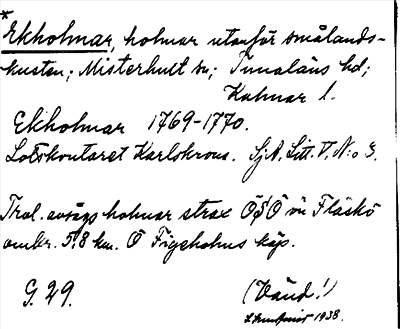 *
Ekholmar, holmar utanför smålands-
kusten; Misterhult sn; Tunaläns hd;
Kalmar l.
Ekholmar 1769-1770.
Lotskontoret Karlskrona. SjA, Litt. V, N:o 3.
Trol. avsågs holmar strax ÖSÖ om Fläskö
omkr. 5,8 km. Ö Figeholms köp.
G. 29.
(Vänd!)
1938.